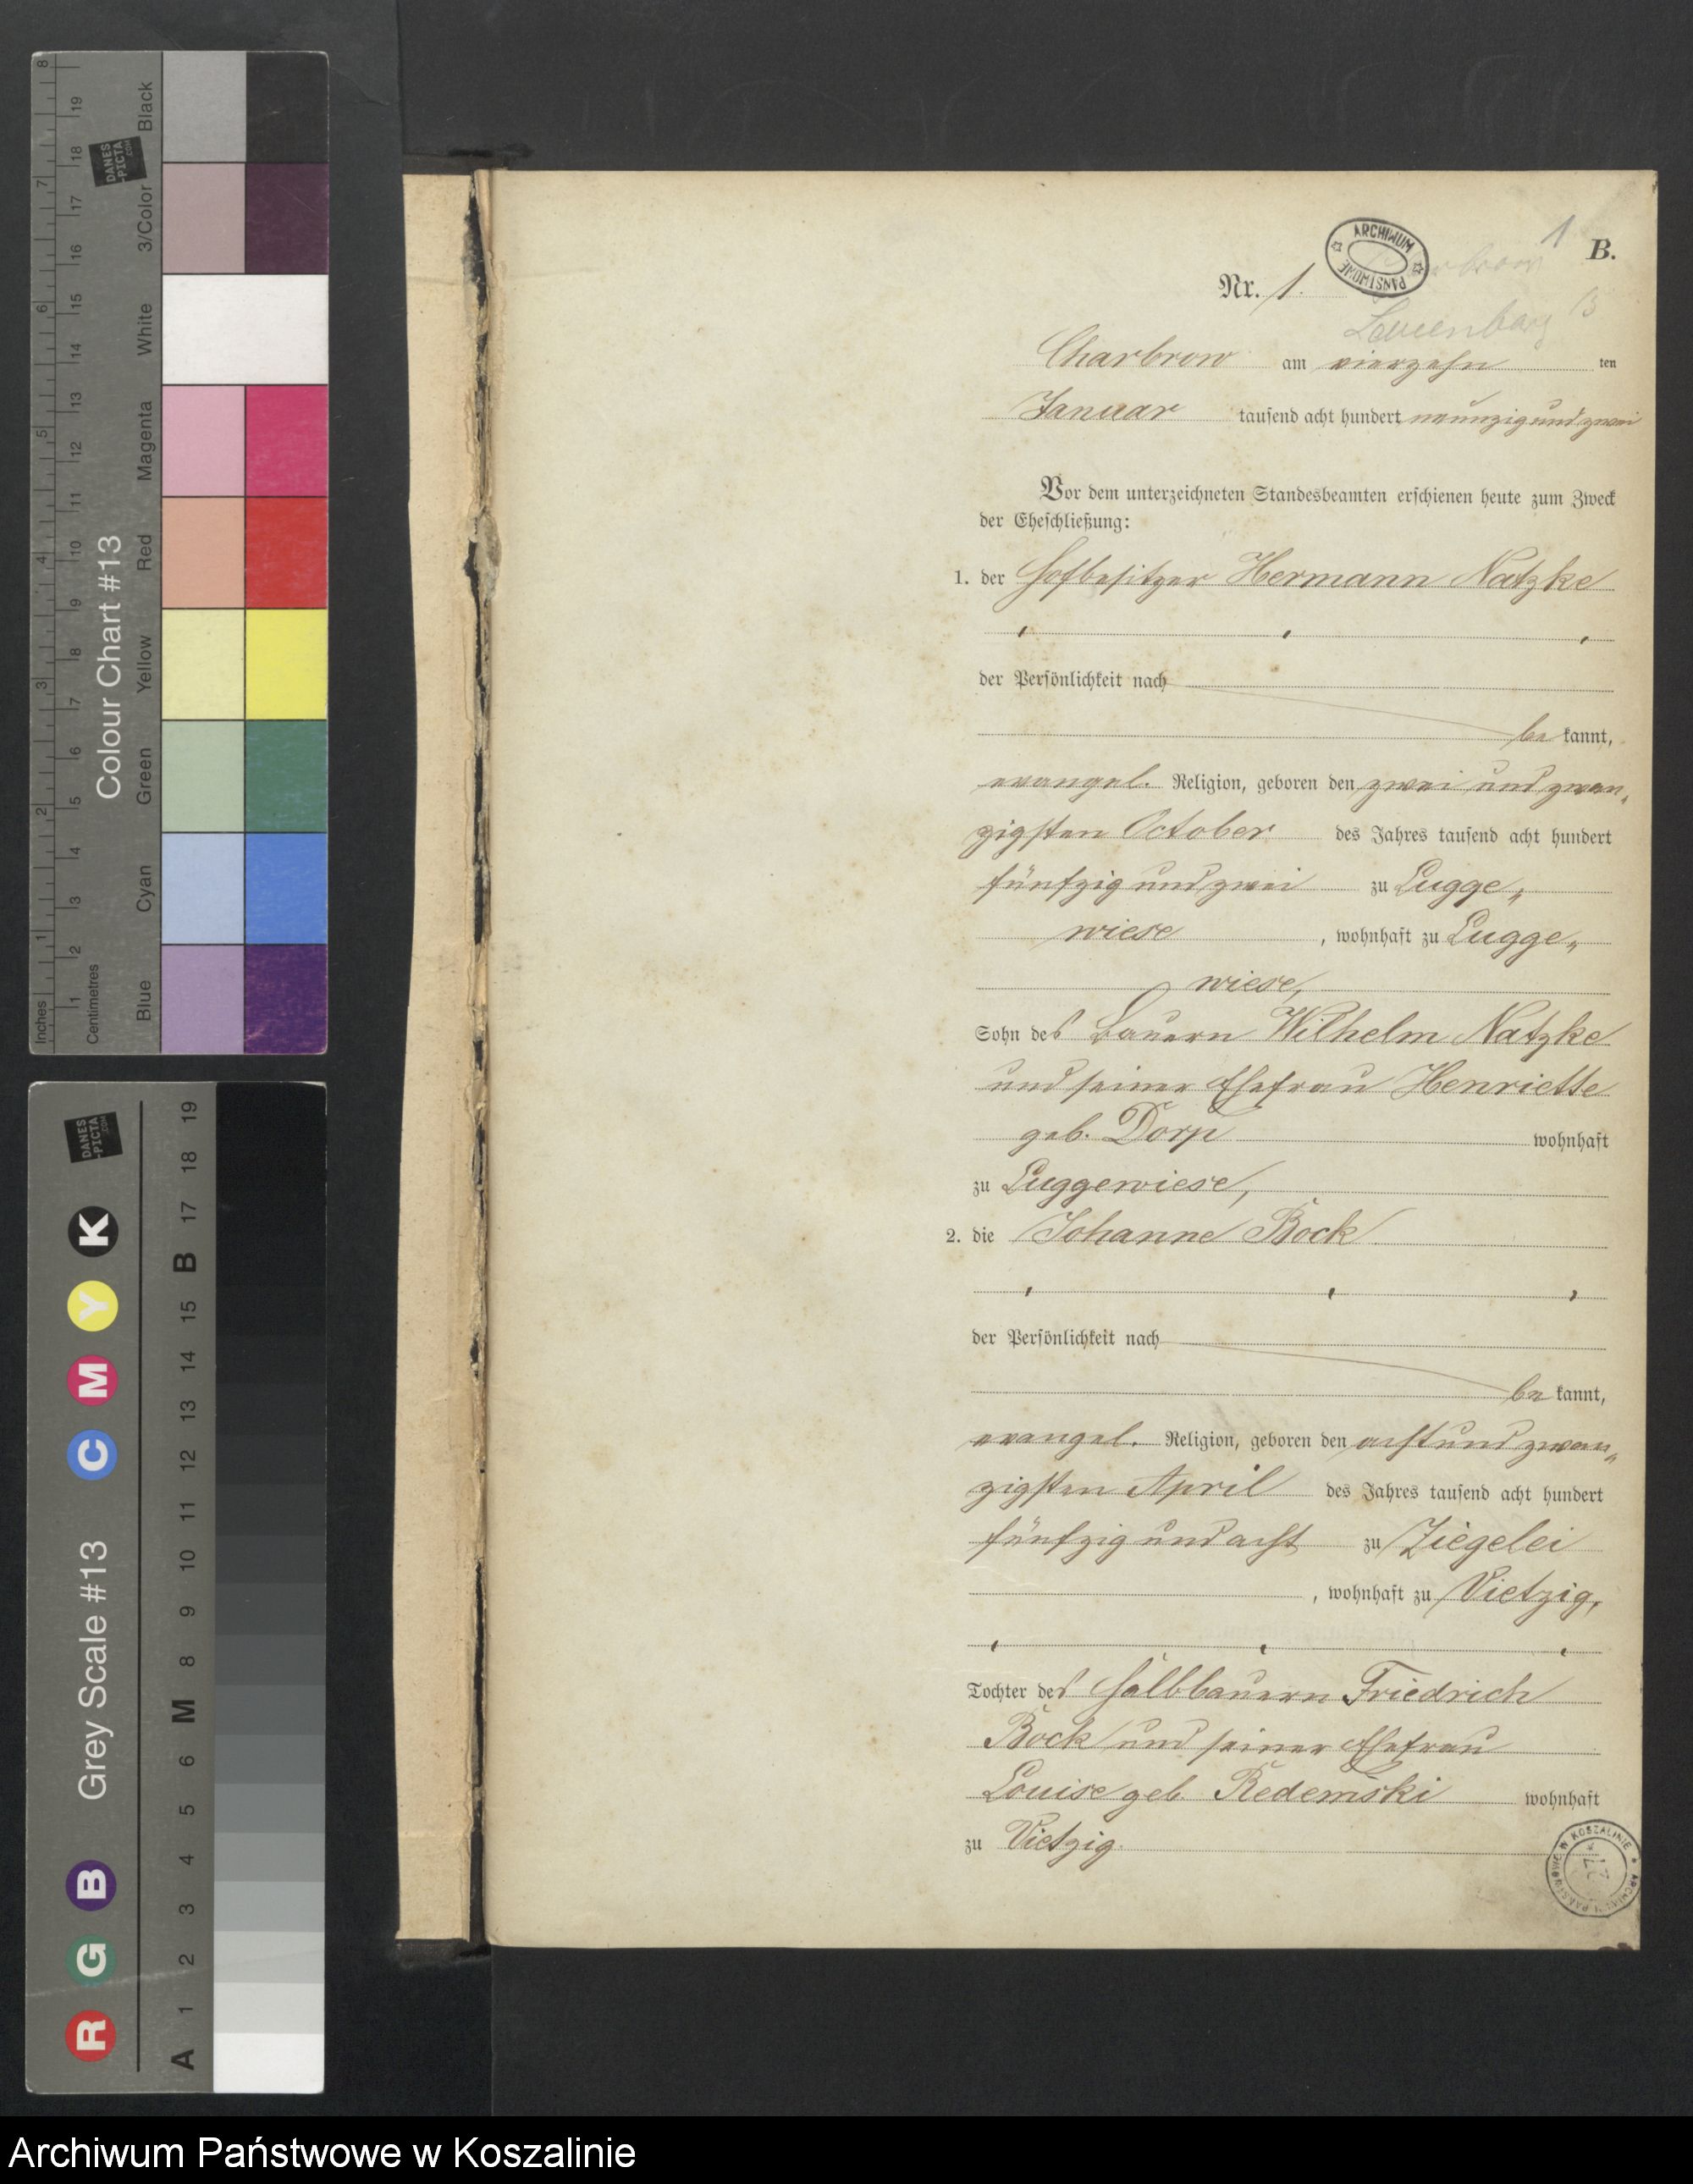 8
7
6
5
4
3
2
1
Inches
19
18
17
16
15
14
13
12
11
10
9
8
7
6
5
4
3
2
1
Centimetres
DANES
-PICTA
.COM
Colour Chart #13
Black
3/Color
White
Magenta
Red
Yellow
Green
Cyan
Blue
DANES
-PICTA
.COM
Grey Scale #13
R G B C M Y K
A 1 2 3 4 5 6 M 8 9 10 11 12 13 14 15 B 17 18 19
1
B.
ARCHIWUM PAŃSTWOWE
Nr. 1.
Lauenburg
Charbrow am vierzehn ten
Januar tausend acht hundert neunzig und zwei
Vor dem unterzeichneten Standesbeamten erschienen heute zum Zweck
der Eheschließung:
1. der Hofbesitzer Hermann Natzke
der Persönlichkeit nach
be kannt,
evangel. Religion, geboren den zwei und zwan„
zigsten October des Jahres tausend acht hundert
fünfzig und zwei zu Lugge„
wiese, wohnhaft zu Lugge„
wiese,
Sohn des Bauern Wilhelm Natzke
und seiner Ehefrau Henriette
geb. Dorp wohnhaft
zu Luggewiese,
2. die Johanne Bock
der Persönlichkeit nach
be kannt,
evangel. Religion, geboren den acht und zwan„
zigsten April des Jahres tausend acht hundert
fünfzig und acht zu Ziegelei
, wohnhaft zu Vietzig,
Tochter des Halbbauern Friedrich
Bock und seiner Ehefrau
Louise geb. Redemski wohnhaft
zu Vietzig.
ARCHIWUM PAŃSTWOWE W KOSZALINIE
Archiwum Państwowe w Koszalinie